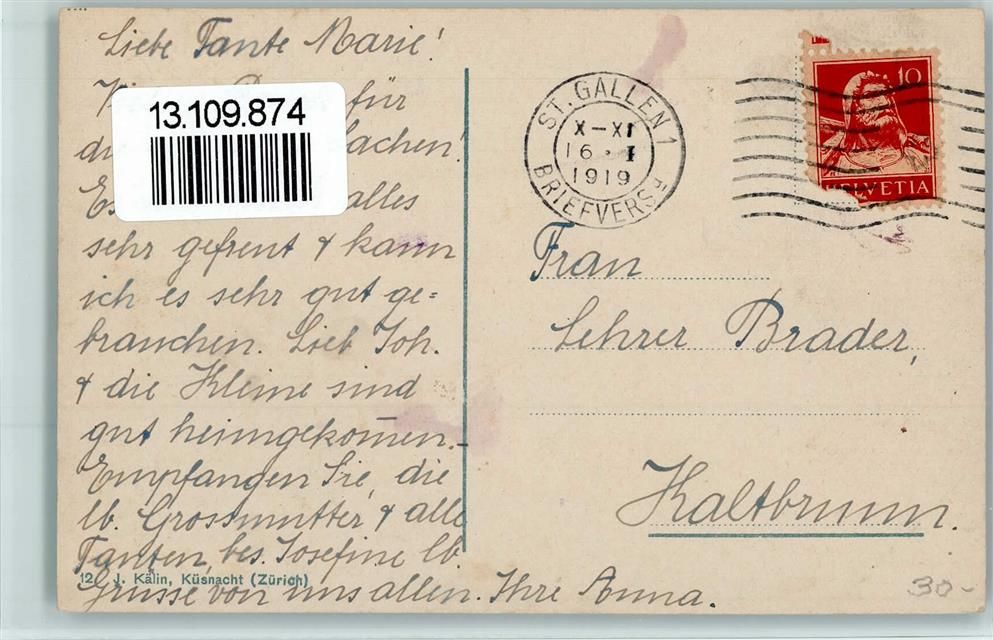 Liebe Tante Marie!
für
13.109.874
achen!
alles
sehr gefreut & kann
ich es sehr gut ge=
brauchen. Lieb Joh.
& die Kleine sind
gut heimgekom̅en._
Empfangen Sie, die
lb. Grossmutter & alle
Tanten, bes. Josefine lb.
12 J. Kälin, Küsnacht (Zürich)
Grüsse von uns allen. Ihre Anna.
ST. GALLEN 1
X–XI
16. I
1919
BRIEFVERSD
10
HELVETIA
Frau
Lehrer Brader,
Kaltbrunn.
30-